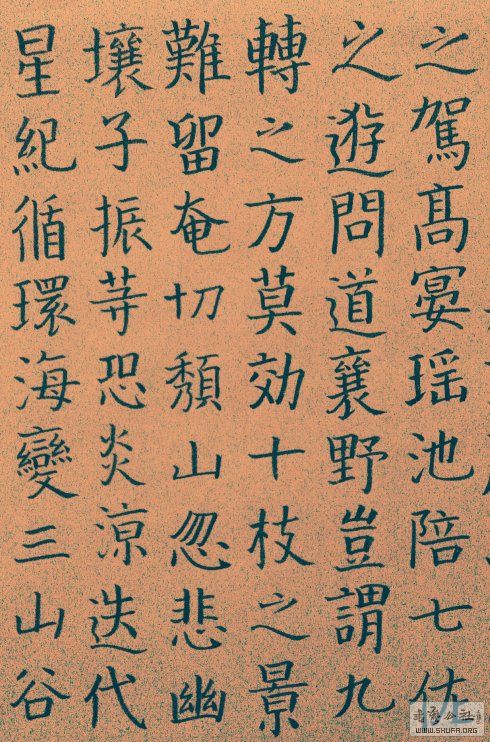 之駕髙宴瑶池陪七
之遊問道襄野豈謂九
轉之方莫効十枝之景
難留奄切頽山忽悲幽
壤子振等恐炎涼迭代
星紀循環海變三山谷
WWW.SHUFA.ORG